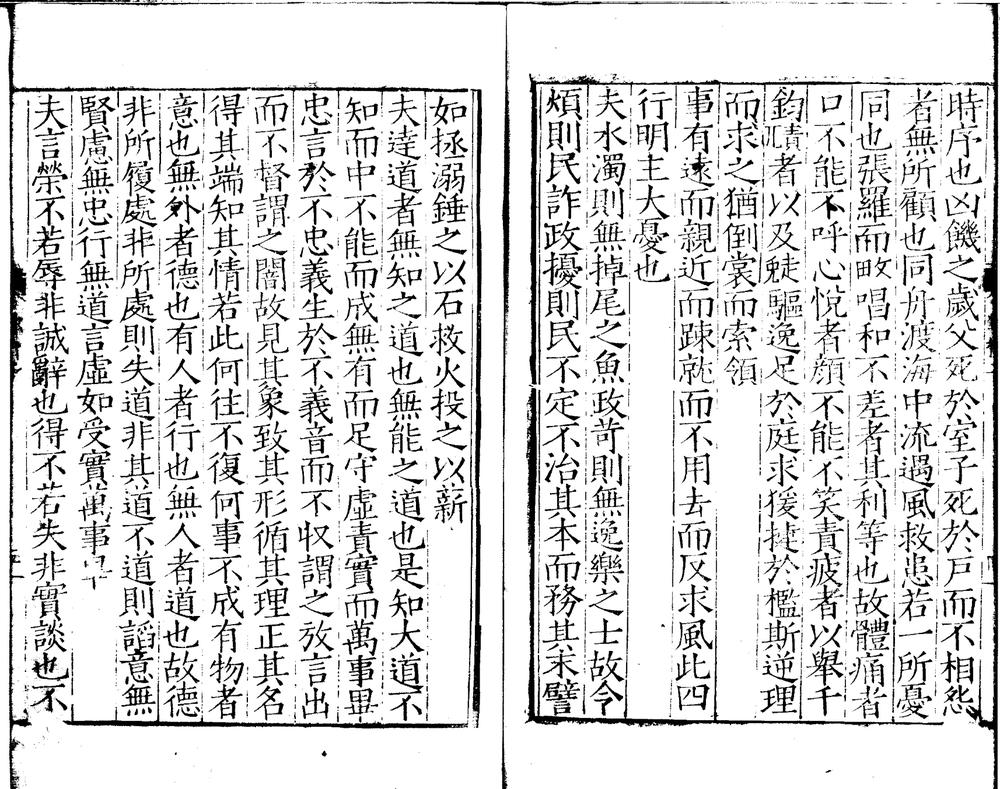 時序也凶饑之歲父死於室子死於戶而不相怨
者無所顧也同舟渡海中流遇風救患若一所憂
同也張羅而畋唱和不差者其利等也故體痛者
口不能不呼心悅者顔不能不笑責疲者以舉千
鈞責兀者以及走兔驅逸足於庭求猨捷於檻斯逆理
而求之猶倒裳而索領
事有遠而親近而踈就而不用去而反求風此四
行明主大憂也
夫水濁則無掉尾之魚政苛則無逸樂之士故令
煩則民詐政擾則民不定不治其本而務其末譬
如拯溺錘之以石救火投之以薪
夫達道者無知之道也無能之道也是知大道不
知而中不能而成無有而足守虛責實而萬事畢
忠言於不忠義生於不義音而不收謂之放言出
而不督謂之闇故見其象致其形循其理正其名
得其端知其情若此何往不復何事不成有物者
意也無外者德也有人者行也無人者道也故德
非所履處非所處則失道非其道不道則謟意無
賢慮無忠行無道言虛如受實萬事畢
夫言榮不若辱非誠辭也得不若失非實談也不